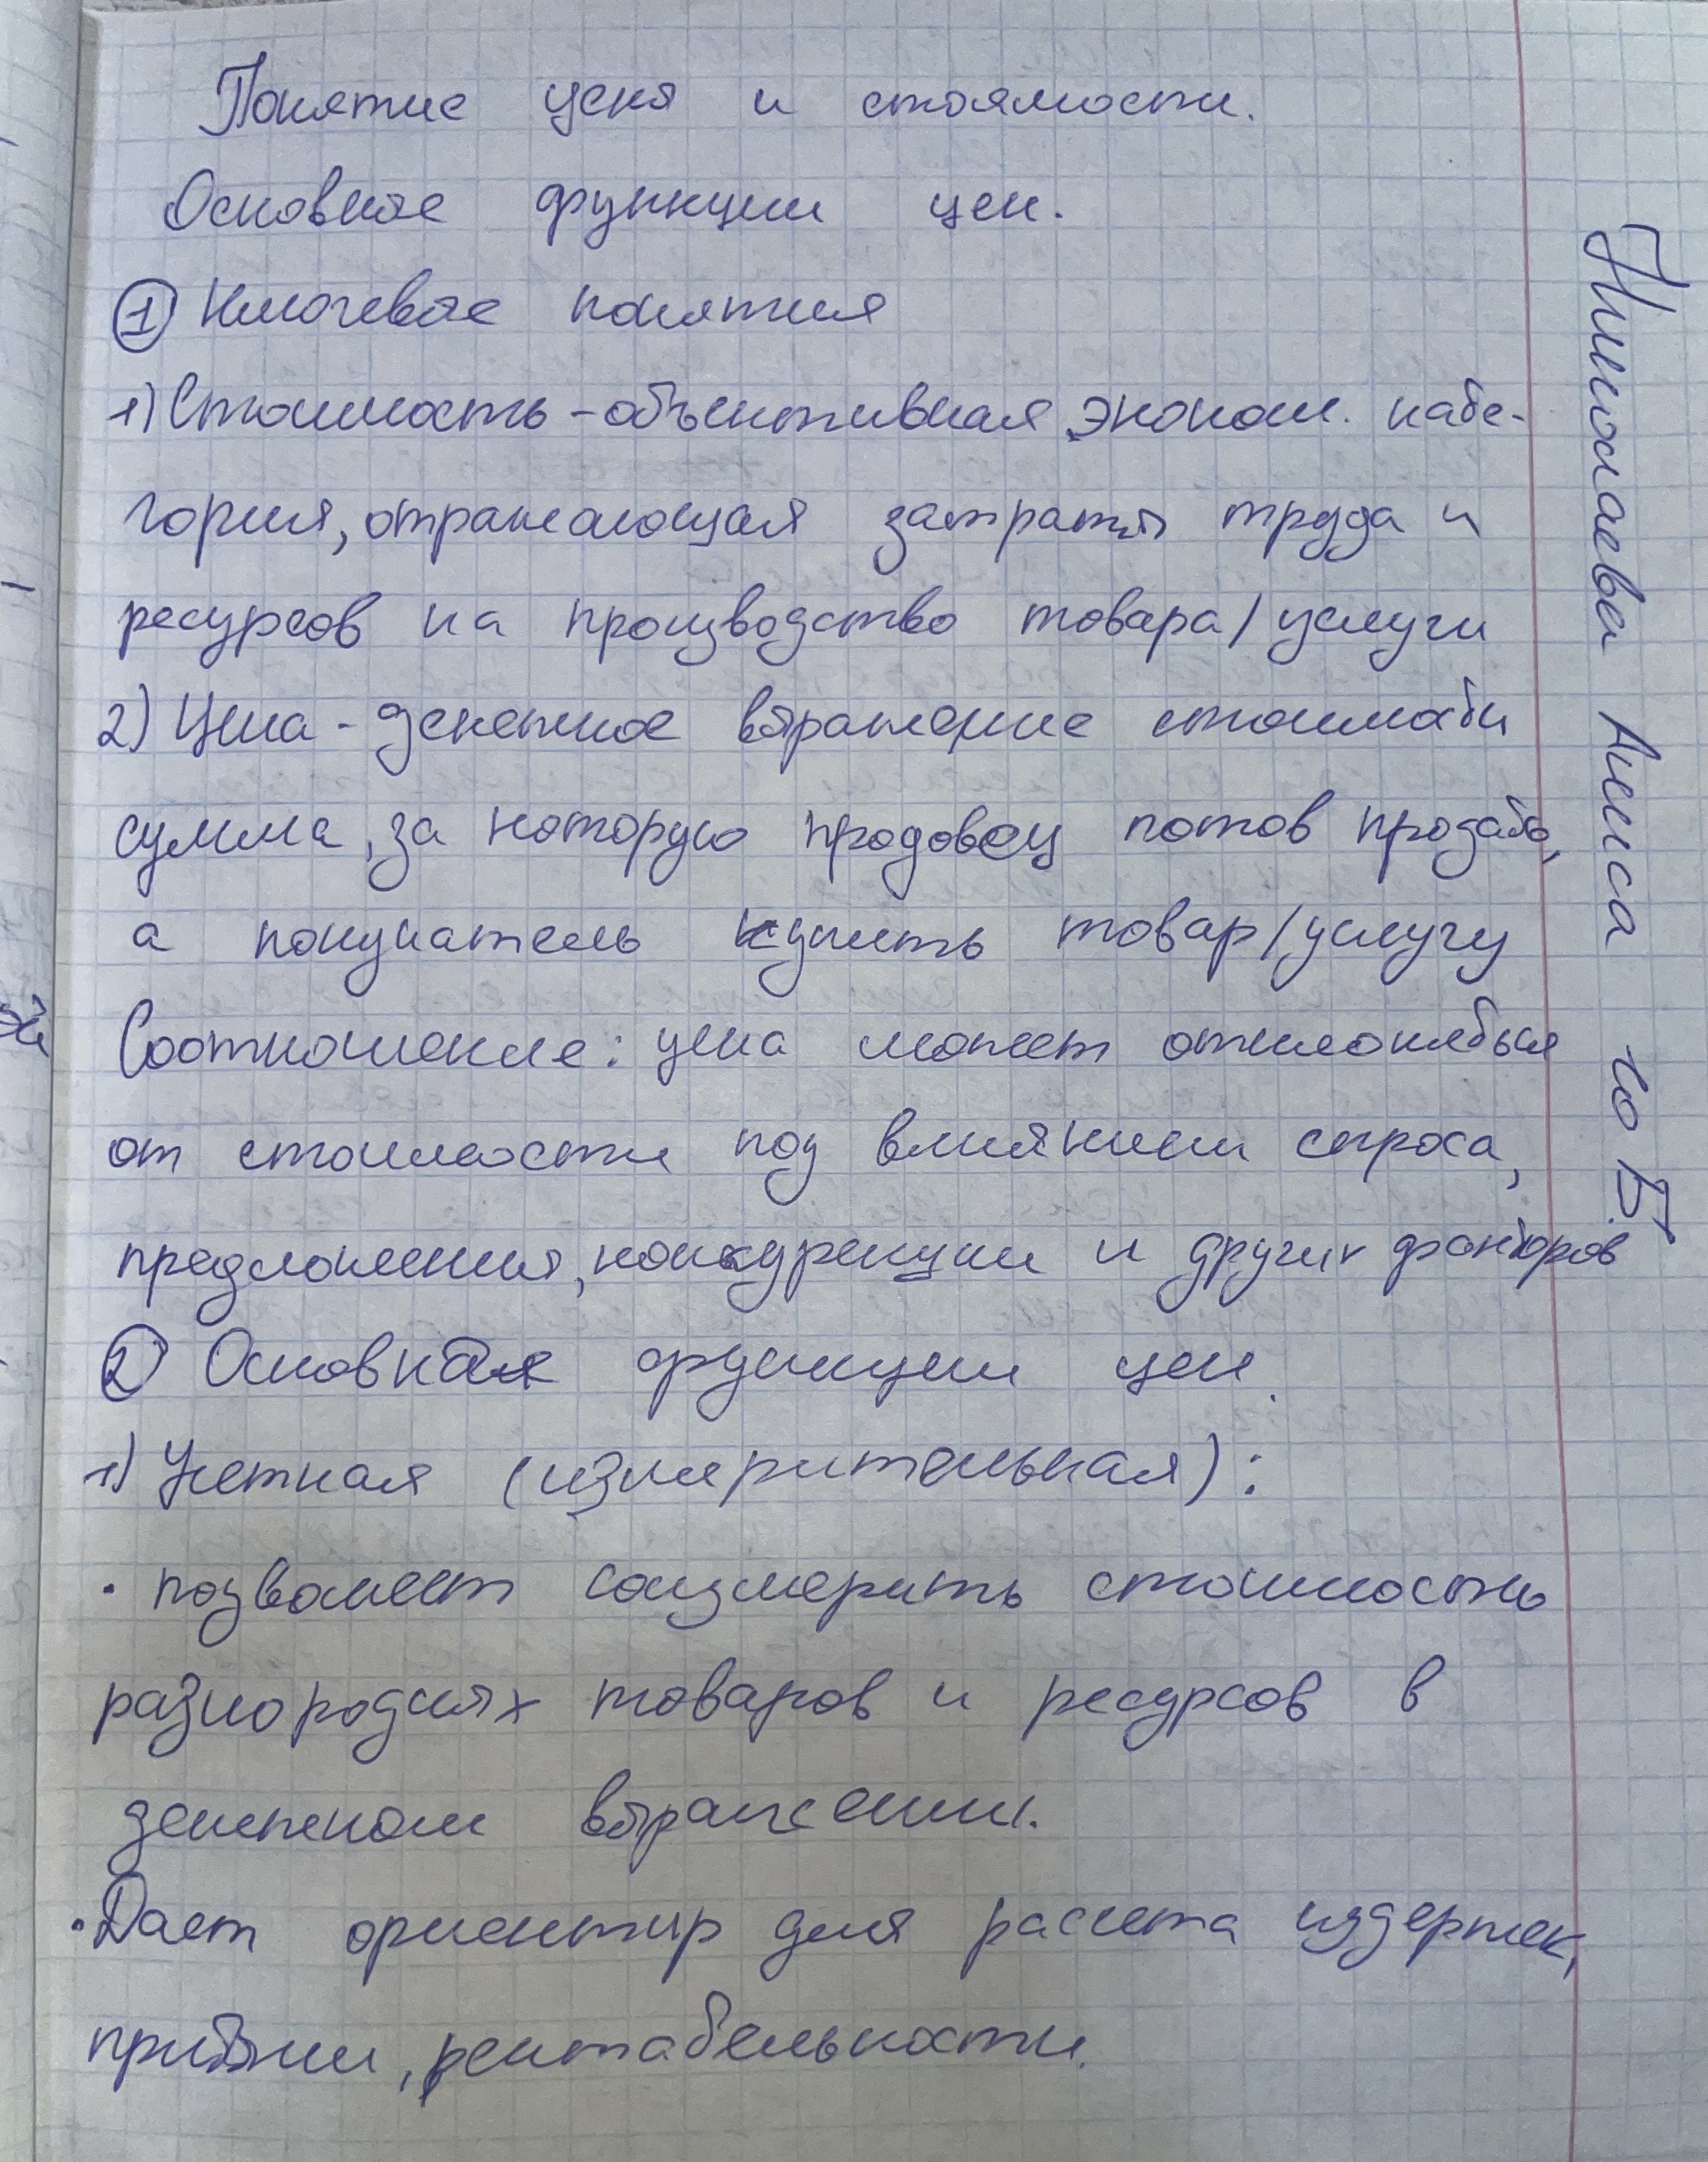 Понятие цены и стоямости.
Основные функции цен.
① Ключевые понятия
1) Стоимость - объективная эконом. кате-
гория, отражающая затраты труда и
ресурсов на производство товара/услуги
2) Цена - денежное выражение стоимости
сумма, за которую продовец готов продать,
а покупатель купить товар/услугу
Соотношение: цена может отклоняться
от стоимости под влиянием спроса,
предложения, конкуренции и других факторов
② Основные функции цен.
1) Учетная (измерительная):
· позволяет соизмерить стоимость
разнородных товаров и ресурсов в
денежном выражении.
· Дает ориентир для расчета издержек,
прибыли, рентабельности.
Николаева Алиса 10 Б